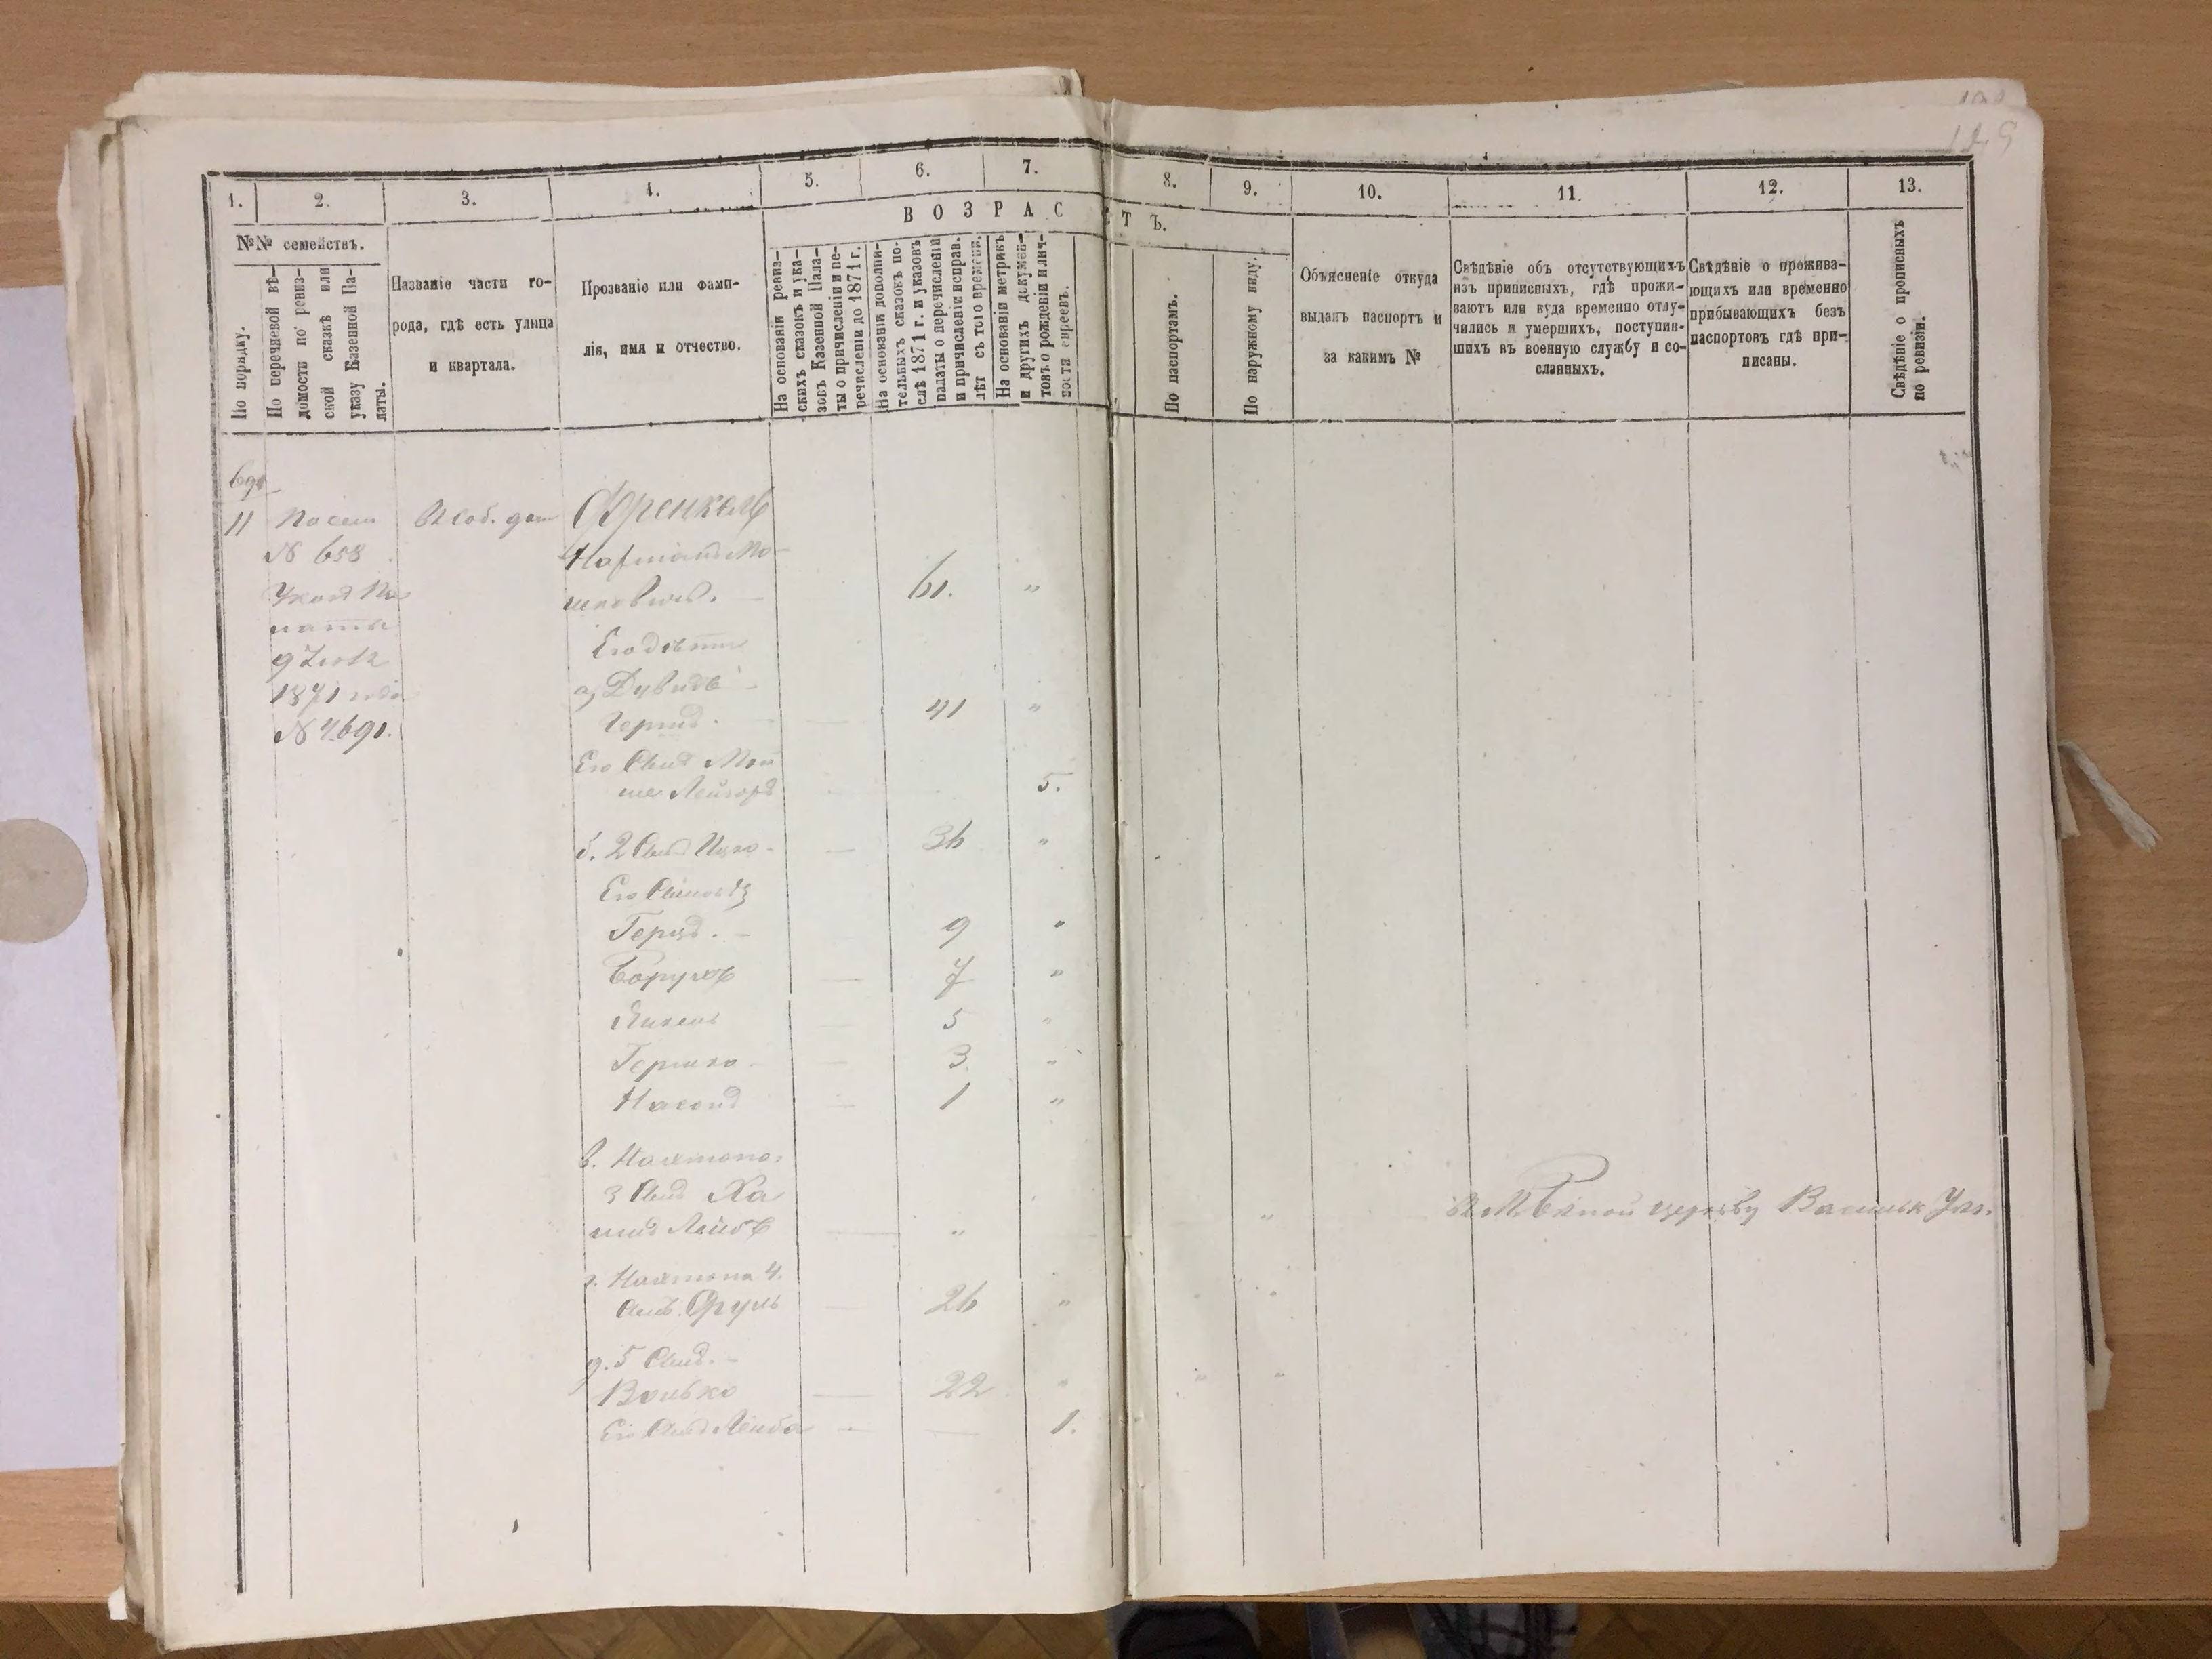 149
1.
2.
3.
4.
5.
6.
7.
8.
9.
10.
11.
12.
13.
ВОЗРАСТЪ.
№№ семействъ.
По порядку.
По перечневой вѣ-
домость по ревиз-
ской сказкѣ или
указу Казенной Па-
латы.
Названіе части го-
рода, гдѣ есть улица
и квартала.
Прозваніе или фами-
лія, имя и отчество.
На основаніи ревиз-
скихъ сказокъ и ука-
зокъ Казенной Пала-
ты о причисленіи и пе-
речисленіи до 1871 г.
На основаніи дополни-
тельныхъ сказокъ по-
слѣ 1871 г. и указовъ
палаты о перечисленіи
и причисленіи исправ.
лѣт съ того времени.
На основаніи метрикъ
и другихъ докумен-
товъ о рожденіи и лич-
ности евреевъ.
По паспортамъ.
По наружному виду.
Объясненіе откуда
выданъ паспортъ и
за какимъ №
Свѣдѣніе объ отсутствующихъ
изъ приписныхъ, гдѣ прожи-
ваютъ или куда временно отлу-
чились и умершихъ, поступив-
шихъ въ военную службу и со-
сланныхъ.
Свѣдѣніе о прожива-
ющихъ или временно
прибывающихъ безъ
паспортовъ гдѣ при-
писаны.
Свѣдѣніе о прописныхъ
по ревизіи.
11
№ 658
Указъ Па-
латы
1871 года
№ 4691.
Въ соб. дом
Френкель
Мо-
шковичъ. 61. "
Его дѣти
а, Дувидъ
Герцъ. 41 "
Его Сынъ Мой
ше 5.
б. 2 Сынъ Ицко 36 "
Его Сыновья
Герцъ. 9 "
Борухъ 7 "
Янкель 5 "
Гершко 3 "
1 "
в.
3 Сынъ Ха
имъ Лейбъ " "
Въ М. Бѣлой церкву Васильк Уѣз.
г. 4.
Сынъ Сруль 26 "
д. 5 Сынъ.
Волько 22 "
Его Сынъ Лейба 1.